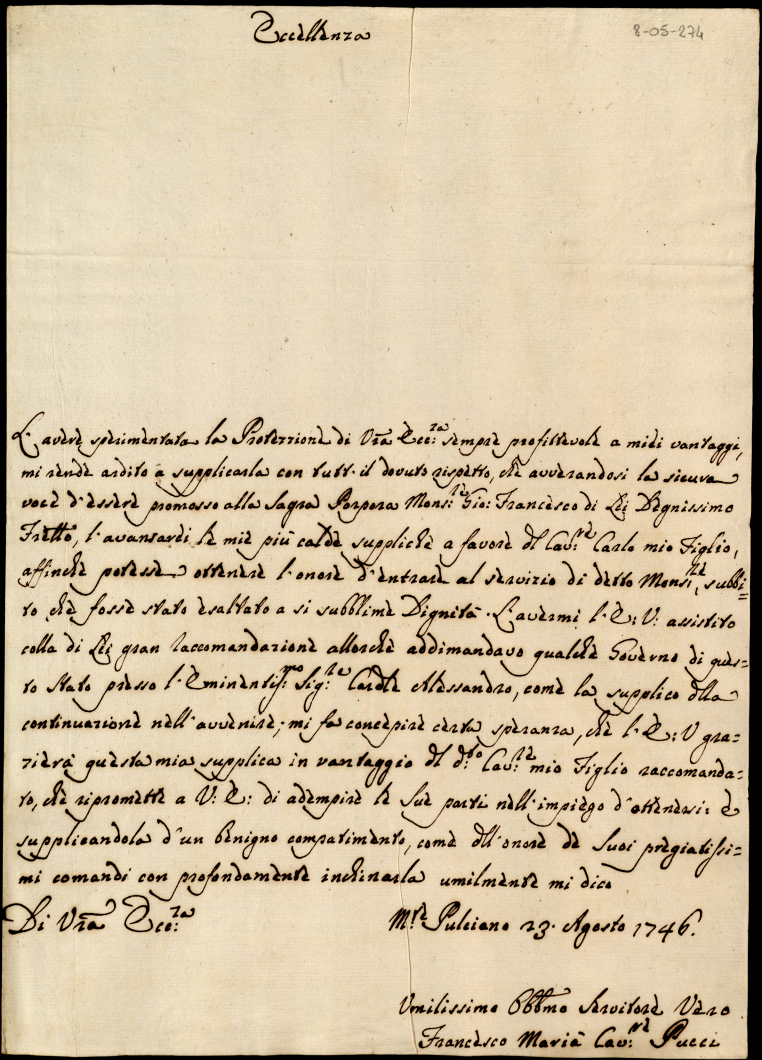 Eccellenza
8-05-274
L'avere sperimentata la Protezzione di Vra Ecc:za sempre profittevole a miei vantaggi,
mi rende ardito a supplicarla con tutt'il dovuto rispetto, che avverandosi la sicura
voce d'essere promosso alla Sagra Porpora Monsi:re Gio: Francesco di Lei Degnissimo
Frēllo, l'avansardi le mie più calde suppliche a favore dl Cav:re Carlo mio Figlio,
affinche potesse ottenere l'onore d'entrare al servizio di detto Monsi:re, subbi=
to che fosse stato esaltato a si subblime Dignità. L'avermi l'E: V: assistito
colla di Lei gran raccomandazione allorche addimandavo qualche Governo di ques=
to Stato presso l'Eminentiss:mo Sig:re Cardle Alessandro, come la supplico dlla
continuazione nell'avvenire; mi fa concepire certa speranza, che l'E: V gra=
zierà questa mia supplica in vantaggio dl d:tto Cav:re mio Figlio raccomanda=
to, che ripromette a V: E: di adempire le Sue parti nell'impiego d'ottenersi: e
supplicandola d'un benigno compatimento, come dll'onore de Suoi pregiatissi=
mi comandi con profondamente inchinarla umilmente mi dico
Di Vra Ecc:za
M:te Pulciano 23. Agosto 1746.
Umilissimo Obbmo Servitore Vero
Francesco Maria Cav:re Pucci